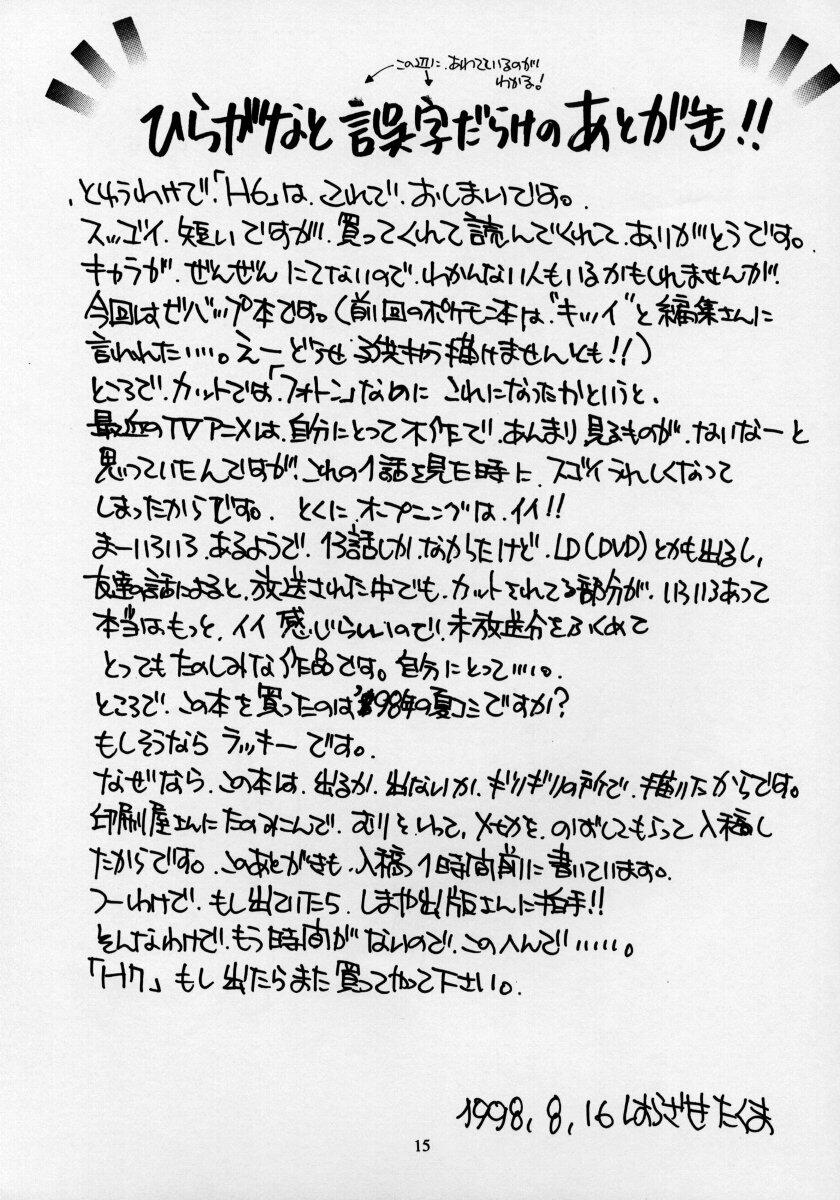 この辺に、あわてているのが
わかる!
ひらがなと誤字だらけのあとがき!!
、とゆうわけで、「H6」は、これで、おしまいです。
スッゴイ、短いですが、買ってくれて読んでくれて、ありがとうです。
キャラが、ぜんぜんにてないので、わかんない人もいるかもしれませんが、
今回はゼバップ本です。(前回のポケモン本は、"キツイ"と編集さんに
言われた‥‥。えーどうせ子供もう描けませんとも!!)
ところで、カットでは、「フォトン」なのに これになったかというと、
最近のTVアニメは、自分にとって不作で、あんまり見るものが、ないなーと
思っていたんですが、これの1話を見た時に、スゴイうれしくなって
しまったからです。 とくに オープニングは、イイ!!
まーいろいろ、あるようで、13話しか、なかったけど、LD(DVD)とかも出るし、
友達の話によると、放送された中でも、カットされてる部分が、いろいろあって
本当は、もっと、イイ 感じらしいので、未放送分をふくめて
とってもたのしみな作品です。自分にとって‥‥。
ところで、この本を買ったのは'98年の夏コミですか?
もしそうなら ラッキーです。
なぜなら、この本は、出るか、出ないか、ギリギリの所で、描いたからです。
印刷屋さんにたのみこんで、むりをいって、〆切を、のばしてもらって入稿し
たからです。このあとがきも、入稿1時間前に書いています。
つーわけで、もし出ていたら、しまや出版さんに拍手!!
そんなわけで、もう時間がないので、このへんで‥‥‥。
「H7」もし出たらまた買ってやって下さい。
1998,8,16 はらざきたくま
15